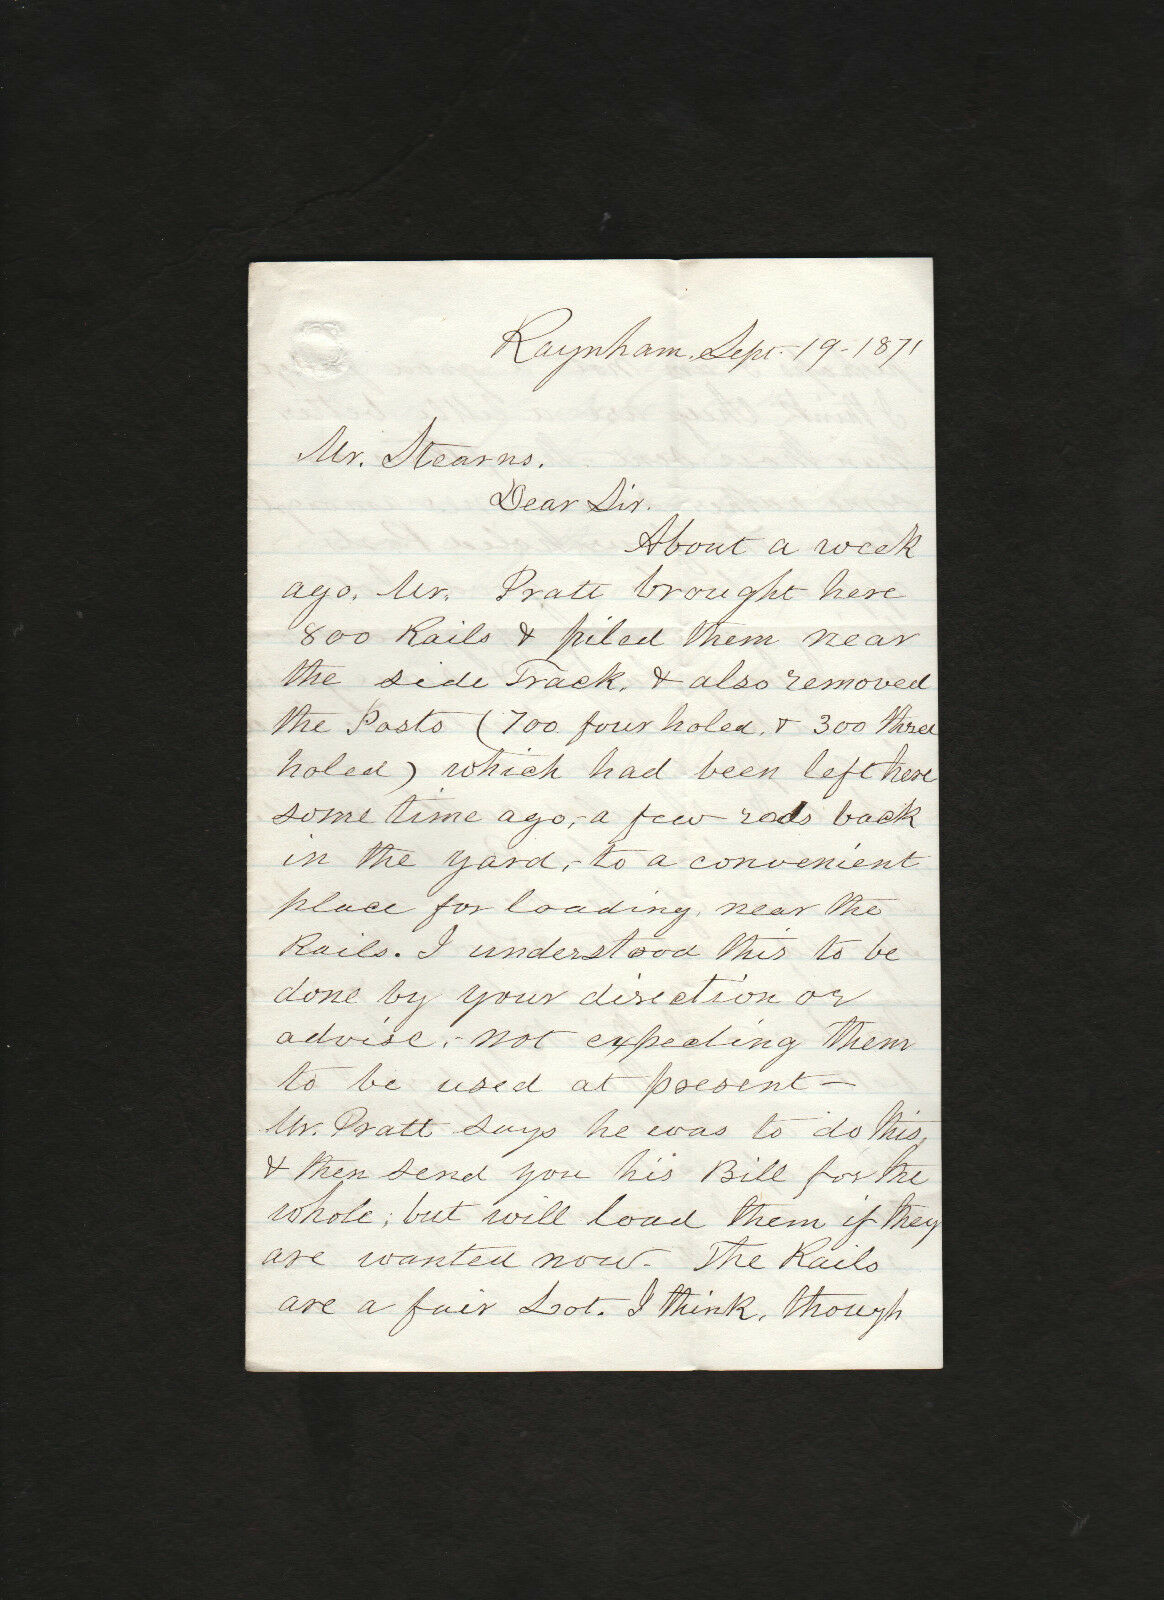 Raynham, Sept. 19-1871
Mr. Stearns.
Dear Sir.
About a week
ago, Mr. Pratt brought here
800 Rails & piled them near
the side Track, & also removed
the Posts (700 four holed, & 300 three
holed) which had been left here
some time ago,- a few rods back
in the yard,- to a convenient
place for loading, near the
Rails. I understood this to be
done by your direction or
advise,- not expecting them
to be used at present-
Mr. Pratt says he was to do this,
& then send you his Bill for the
whole; but will load them if they
are wanted now- The Rails
are a fair Lot. I think, though